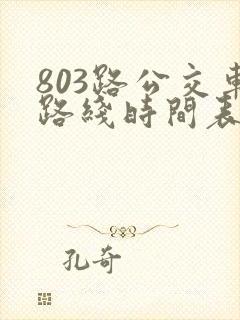 803路公交車
路綫時間表
孔奇